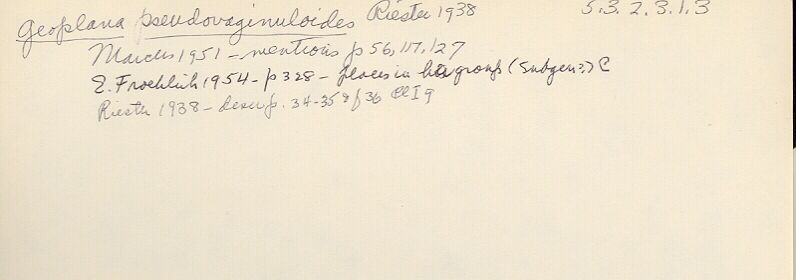 Geoplana pseudovaginuloides Riester 1938 5.3.2.3.1.3
Marcus 1951 - mentions p 56, 117, 127
E. Froehlich 1954 - p 328 - places in her group (subgen?) C
Riester 1938 - descr p. 34-35 & f 36 Pl I 9